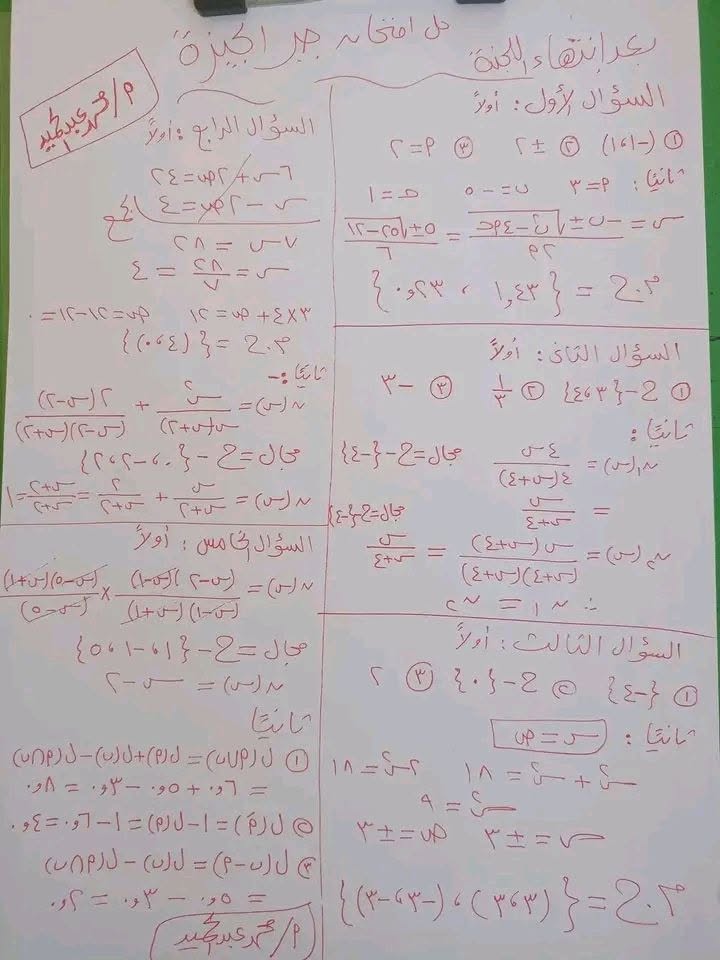 بعد إنتهاء اللجنة
حل امتحان جبر الجيزة
م/محمد عبدالحميد
السؤال الأول: أولاً
① (-١،١) ② ±٢ ③ م=٢
ثانيًا: م=٣ ب=-٥ حـ=١
س = (-ب ± √(ب² - ٤محـ)) / ٢م = (٥ ± √(٢٥-١٢)) / ٦
م.ح = {١,٤٣ ، ٠,٢٣}
السؤال الثانى: أولاً
① ح-{٤،٣} ② ١/٣ ③ -٣
ثانيًا:
ن١(س) = ٤س / ٤(س+٤) مجال=ح-{-٤}
= س / (س+٤) مجال=ح-{-٤}
ن٢(س) = س(س+٤) / (س+٤)(س+٤) = س / (س+٤)
∴ ن١ = ن٢
السؤال الثالث: أولاً
① {-٤} ② ح-{٠} ③ ٢
ثانيًا: س=ص
س² + س² = ١٨ ٢س² = ١٨
س² = ٩
س = ±٣ ص = ±٣
م.ح = {(٣،٣) ، (-٣،-٣)}
السؤال الرابع: أولاً
٦س + ٢ص = ٢٤
س - ٢ص = ٤
بالجمع
٧س = ٢٨
س = ٢٨/٧ = ٤
٣×٤ + ص = ١٢ ص = ١٢-١٢ = ٠
م.ح = {(٤،٠)}
ثانيًا:-
ن(س) = س² / س(س+٢) + ٢(س-٢) / (س-٢)(س+٢)
مجال = ح - {٠،-٢،٢}
ن(س) = س/(س+٢) + ٢/(س+٢) = (س+٢)/(س+٢) = ١
السؤال الخامس: أولاً
ن(س) = (س-٢)(س-١) / (س-١)(س+١) × (س-٥)(س+١) / (س-٥)
مجال = ح - {١،-١،٥}
ن(س) = س-٢
ثانيًا
① ل(م∪ب) = ل(م)+ل(ب)-ل(م∩ب)
= ٠,٦ + ٠,٥ - ٠,٣ = ٠,٨
② ل(مَ) = ١-ل(م) = ١-٠,٦ = ٠,٤
③ ل(ب-م) = ل(ب) - ل(م∩ب)
= ٠,٥ - ٠,٣ = ٠,٢
م/محمد عبدالحميد